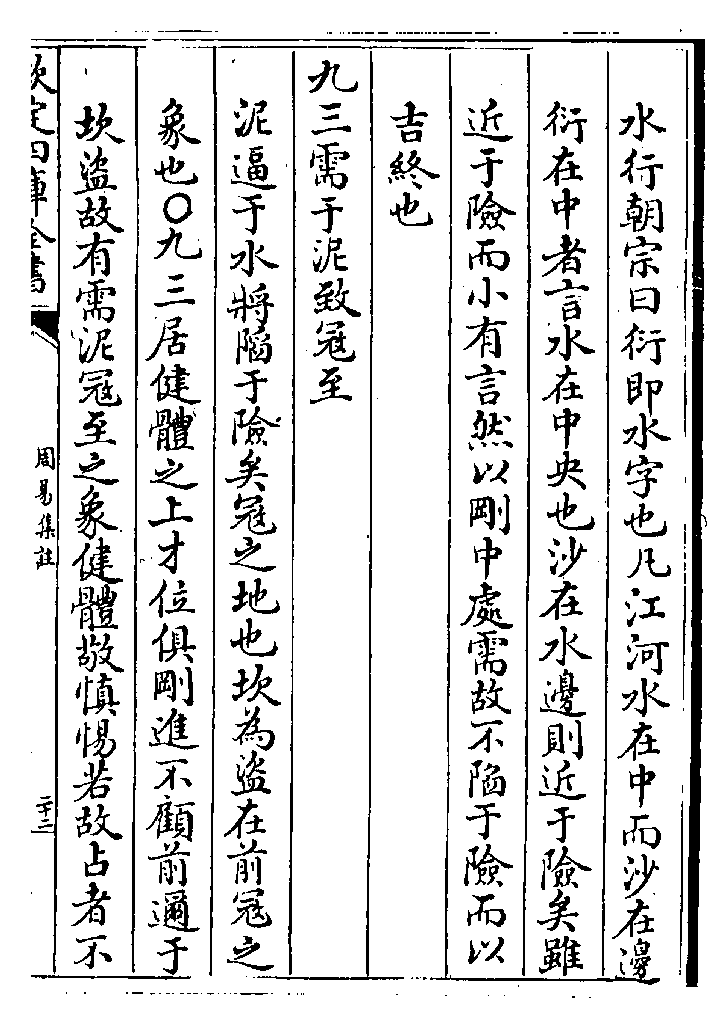 水行朝宗曰衍即水字也凡江河水在中而沙在邊
衍在中者言水在中央也沙在水邊則近于險矣雖
近于險而小有言然以剛中處需故不陷于險而以
吉終也
九三需于泥致寇至
泥逼于水將陷于險矣寇之地也坎為盜在前寇之
象也〇九三居健體之上才位俱剛進不顧前邇于
坎盜故有需泥寇至之象健體敬慎惕若故占者不
欽定四庫全書
周易集註
二十二